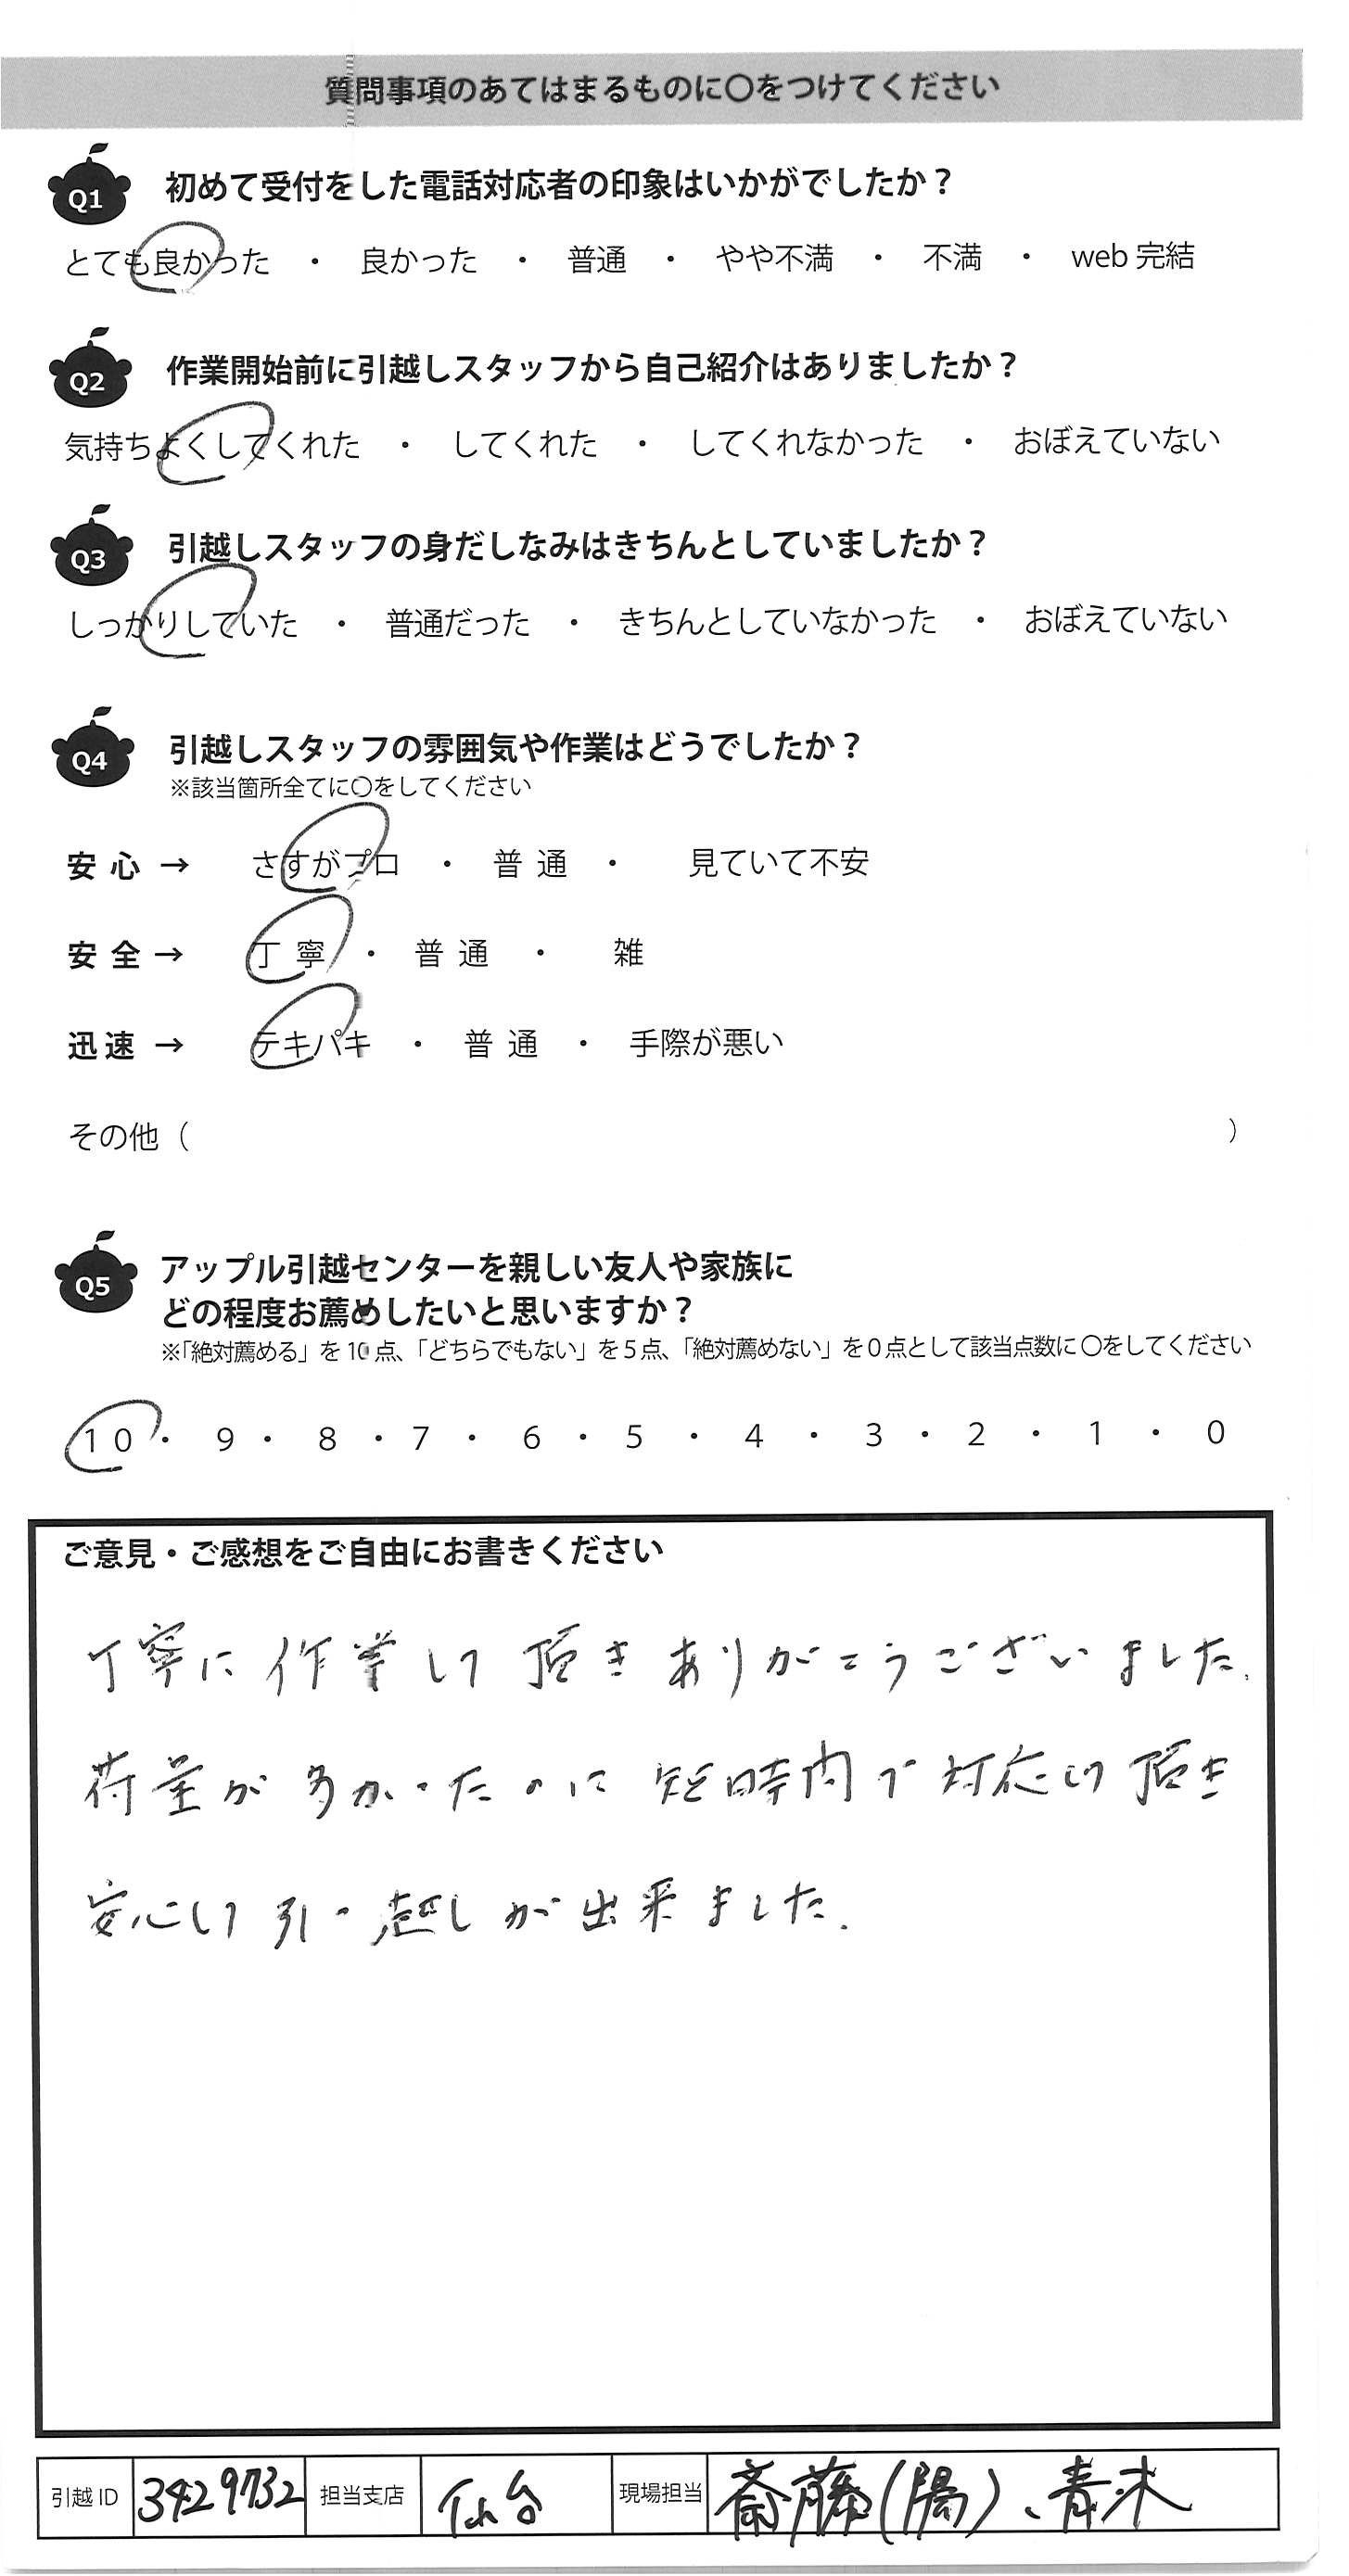 質問事項のあてはまるものに〇をつけてください
Q1 初めて受付をした電話対応者の印象はいかがでしたか？
とても良かった ・ 良かった ・ 普通 ・ やや不満 ・ 不満 ・ web 完結
Q2 作業開始前に引越しスタッフから自己紹介はありましたか？
気持ちよくしてくれた ・ してくれた ・ してくれなかった ・ おぼえていない
Q3 引越しスタッフの身だしなみはきちんとしていましたか？
しっかりしていた ・ 普通だった ・ きちんとしていなかった ・ おぼえていない
Q4 引越しスタッフの雰囲気や作業はどうでしたか？
※該当箇所全てに〇をしてください
安心 → さすがプロ ・ 普通 ・ 見ていて不安
安全 → 丁寧 ・ 普通 ・ 雑
迅速 → テキパキ ・ 普通 ・ 手際が悪い
その他（ ）
Q5 アップル引越センターを親しい友人や家族に
どの程度お薦めしたいと思いますか？
※「絶対薦める」を 10 点、「どちらでもない」を 5 点、「絶対薦めない」を 0 点として該当点数に〇をしてください
10 ・ 9 ・ 8 ・ 7 ・ 6 ・ 5 ・ 4 ・ 3 ・ 2 ・ 1 ・ 0
ご意見・ご感想をご自由にお書きください
丁寧に作業して頂きありがとうございました.
荷量が多かったのに短時間で対応して頂き
安心して引っ越しが出来ました.
引越 ID 3429732 担当支店 仙台 現場担当 斎藤(陽)、青木